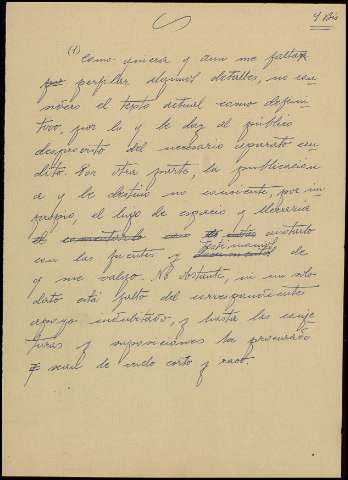 9 Bis
(1) Como quiera y aun me faltan
por perfilar algunos detalles, no con-
sidero el texto actual como defini-
tivo, por lo y le doy al público
desprovisto del necesario aparato eru-
dito. Por otra parte, la publicación
a y le destino no consiente, por im-
propio, el lujo de espacio y llevaría
anotarlo
con las fuentes y testimonios de
y me valgo. No obstante, ni un solo
dato está falto del correspondiente
apoyo indubitado, y hasta las conje-
turas y suposiciones he procurado
y sean de vuelo corto y raso.